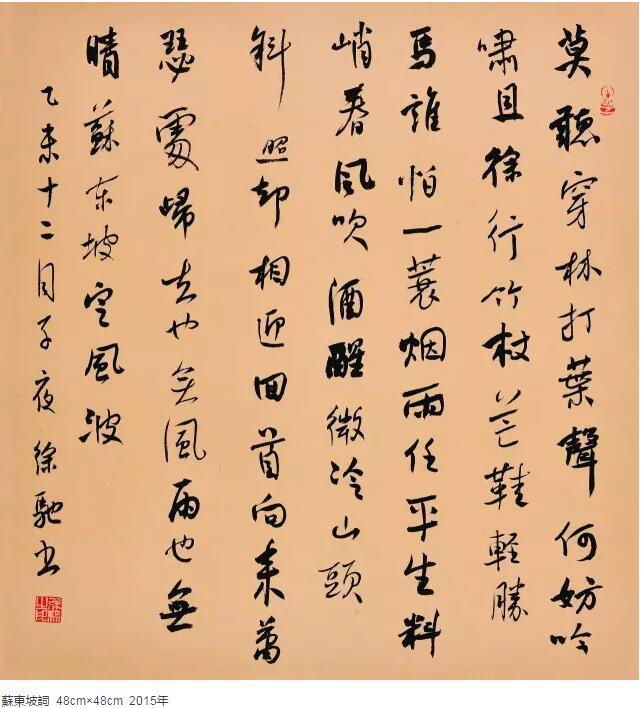 莫聽穿林打葉聲何妨吟
嘯且徐行竹杖芒鞋輕勝
馬誰怕一蓑烟雨任平生料
峭春風吹酒醒微冷山頭
斜照却相迎回首向来蕭
瑟處歸去也无風雨也無
晴蘇东坡定風波
乙未十二月子夜徐馳书
蘇東坡詞 48cm×48cm 2015年